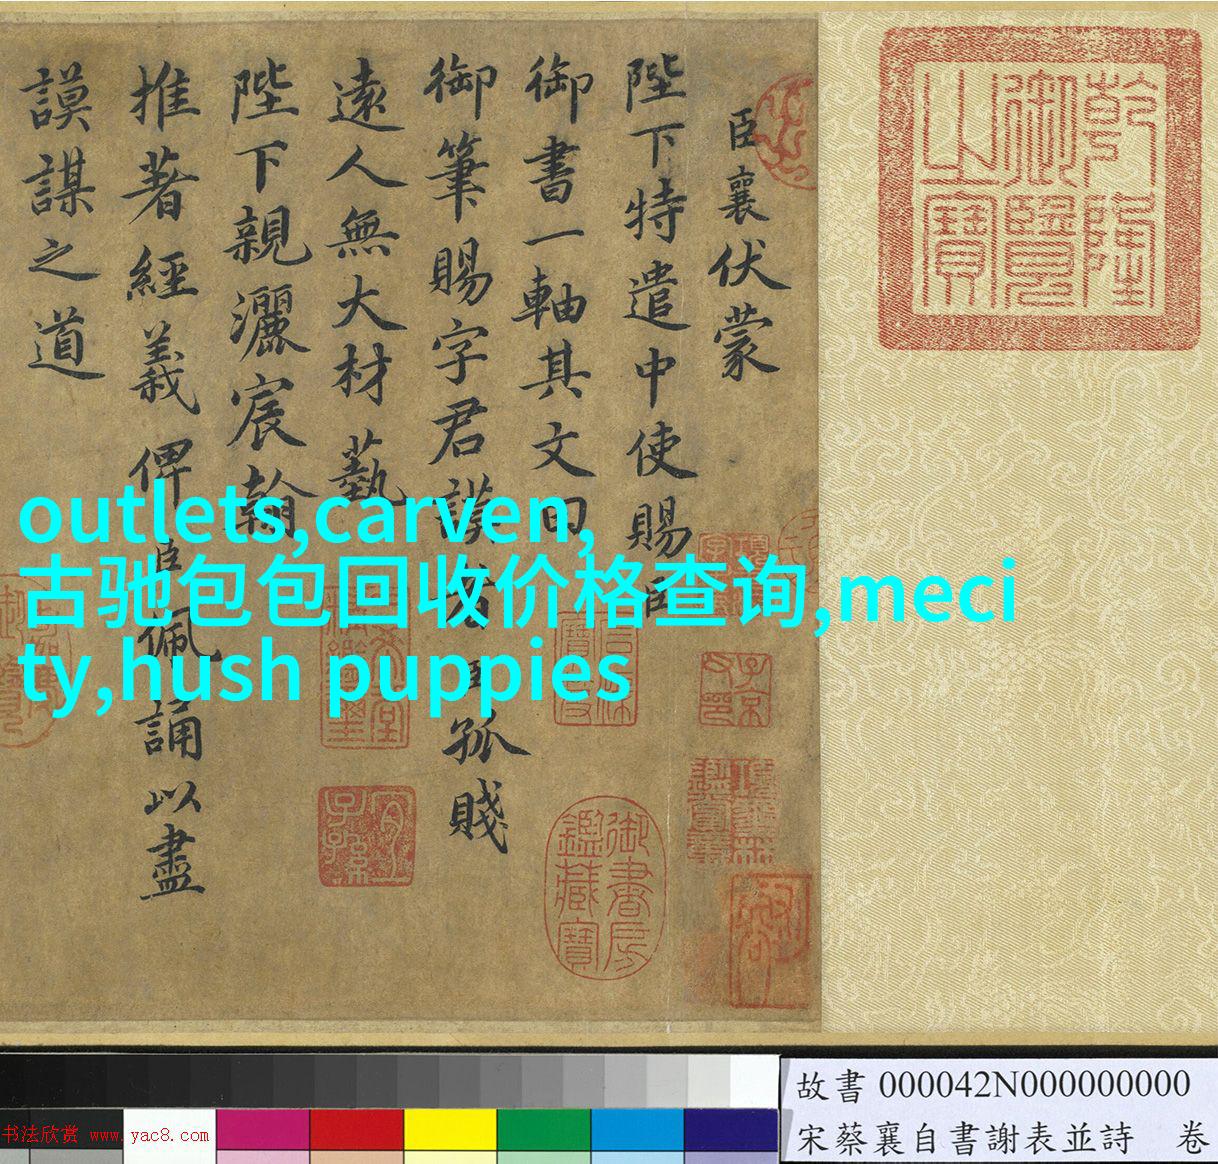 臣襄伏蒙
陛下特遣中使賜臣
御書一軸其文曰
御筆賜字君謨者臣孤賤
遠人無大材藝
陛下親灑宸翰
推著經義俾臣佩誦以盡
謨謀之道
乾隆
御覽
之寶
御書房
鑑藏寶
宜
子孫
outlets,carven,
古驰包包回收价格查询,meci
ty,hush puppies
故書 000042N000000000
宋蔡襄自書謝表並詩 卷
书法欣赏 www.yac8.com